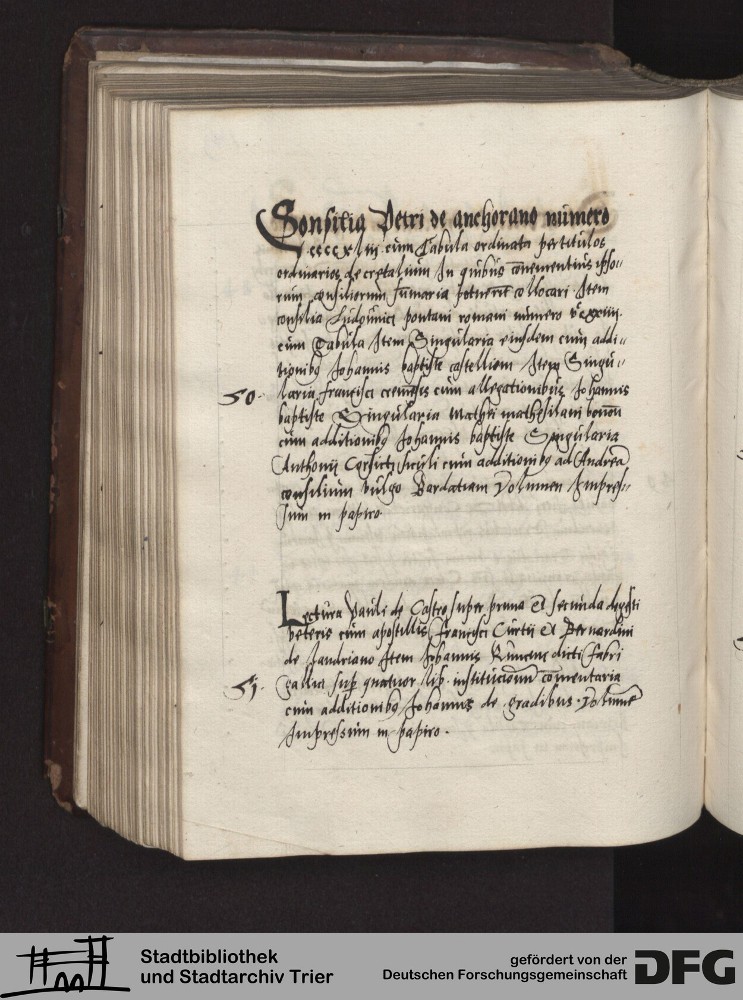 Consilia Petri de anchorano numero
ccccxlij cum Tabula ordinata per titulos
ordinarios decretalium In quibus convenientius ipso-
rum consiliorum summaria potuerūt collocari Item
consilia Ludouici pontani romani numero
cum Tabula Item Singularia eiusdem cum addi-
tionibꝫ Johannis baptiste castelliom Item Singu-
50. laria francisci cremēsis cum allegationibus Johannis
baptiste Singularia mathei mathesilani bonon
cum additionibꝫ Johannis baptiste Singularia
Anthonij Corsicti siculi cum additionibꝫ ad Andreā
consilium vulgo Bardatiam Volumen Impres-
sum in papiro
Lectura Pauli de Castro super prima et secunda digesti
veteris cum apostillis francisci Curtii et Bernardini
de landriano Item Johannis dicti fabri
51. super quatuor lib. institucionum comentaria
cum additionibꝫ Johannis de gradibus. Volumē
Impressum in papiro.
Stadtbibliothek
und Stadtarchiv Trier
gefördert von der
Deutschen Forschungsgemeinschaft
DFG